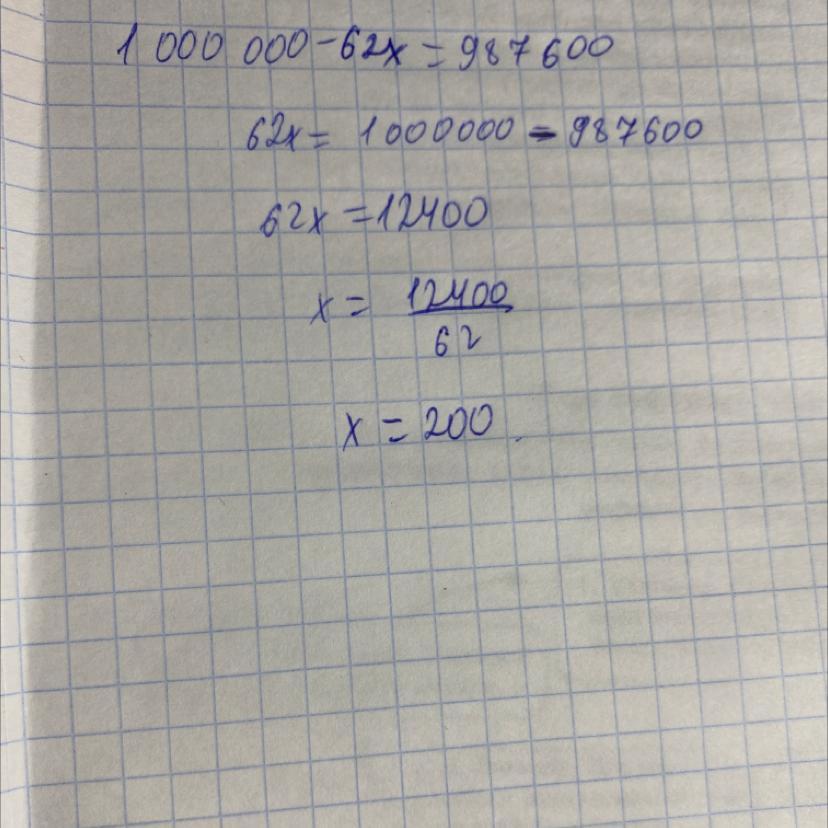 1 000 000 - 62x = 987 600
62x = 1000000 - 987600
62x = 12400
x = 12400/62
x = 200.